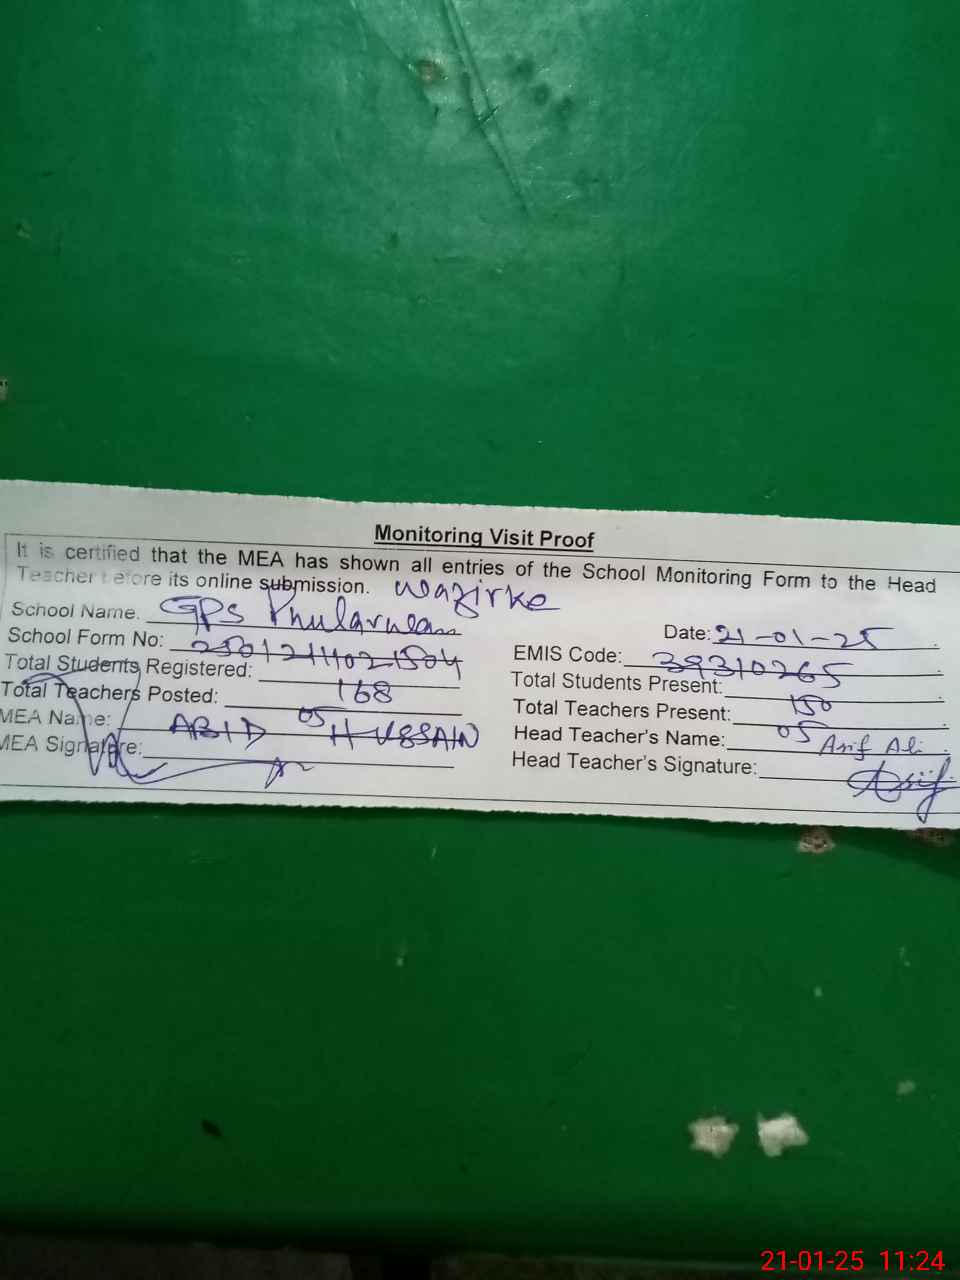 Monitoring Visit Proof
It is certified that the MEA has shown all entries of the School Monitoring Form to the Head
Teacher before its online submission. Wazirke
School Name. GPS
Date: 21-01-25
School Form No:
EMIS Code: 39310265
Total Students Registered: 168
Total Students Present: 150
Total Teachers Posted: 05
Total Teachers Present: 05
MEA Name: ABID HUSSAIN
Head Teacher's Name: Asif Ali
MEA Signature:
Head Teacher's Signature: Asif
21-01-25 11:24